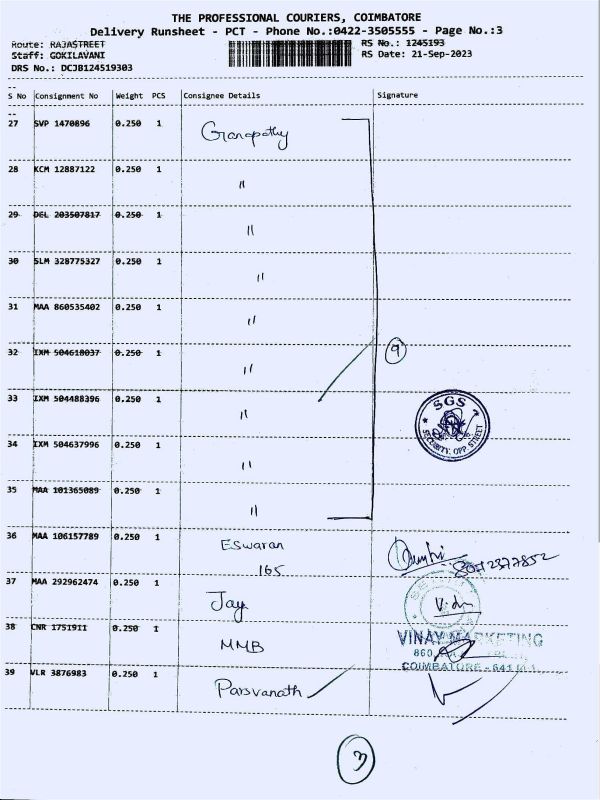 THE PROFESSIONAL COURIERS, COIMBATORE
Delivery Runsheet - PCT - Phone No.:0422-3505555 - Page No.:3
Route: RAJASTREET RS No.: 1245193
Staff: GOKILAVANI RS Date: 21-Sep-2023
DRS No.: DCJB124519303
S No Consignment No Weight PCS Consignee Details Signature
27 SVP 1470896 0.250 1 Ganapathy
28 KCM 12887122 0.250 1 "
29 DEL 203507817 0.250 1 "
30 SLM 328775327 0.250 1 "
31 MAA 860535402 0.250 1 "
32 IXM 504618037 0.250 1 "
9
33 IXM 504488396 0.250 1 "
SGS
SECURITY: OPP STREET
34 IXM 504637996 0.250 1 "
35 MAA 101365089 0.250 1 "
36 MAA 106157789 0.250 1 Eswaran
165
37 MAA 292962474 0.250 1 Jay
38 CNR 1751911 0.250 1 MMB
VINAY MARKETING
860,
COIMBATORE - 641
39 VLR 3876983 0.250 1 Parsvanath
3